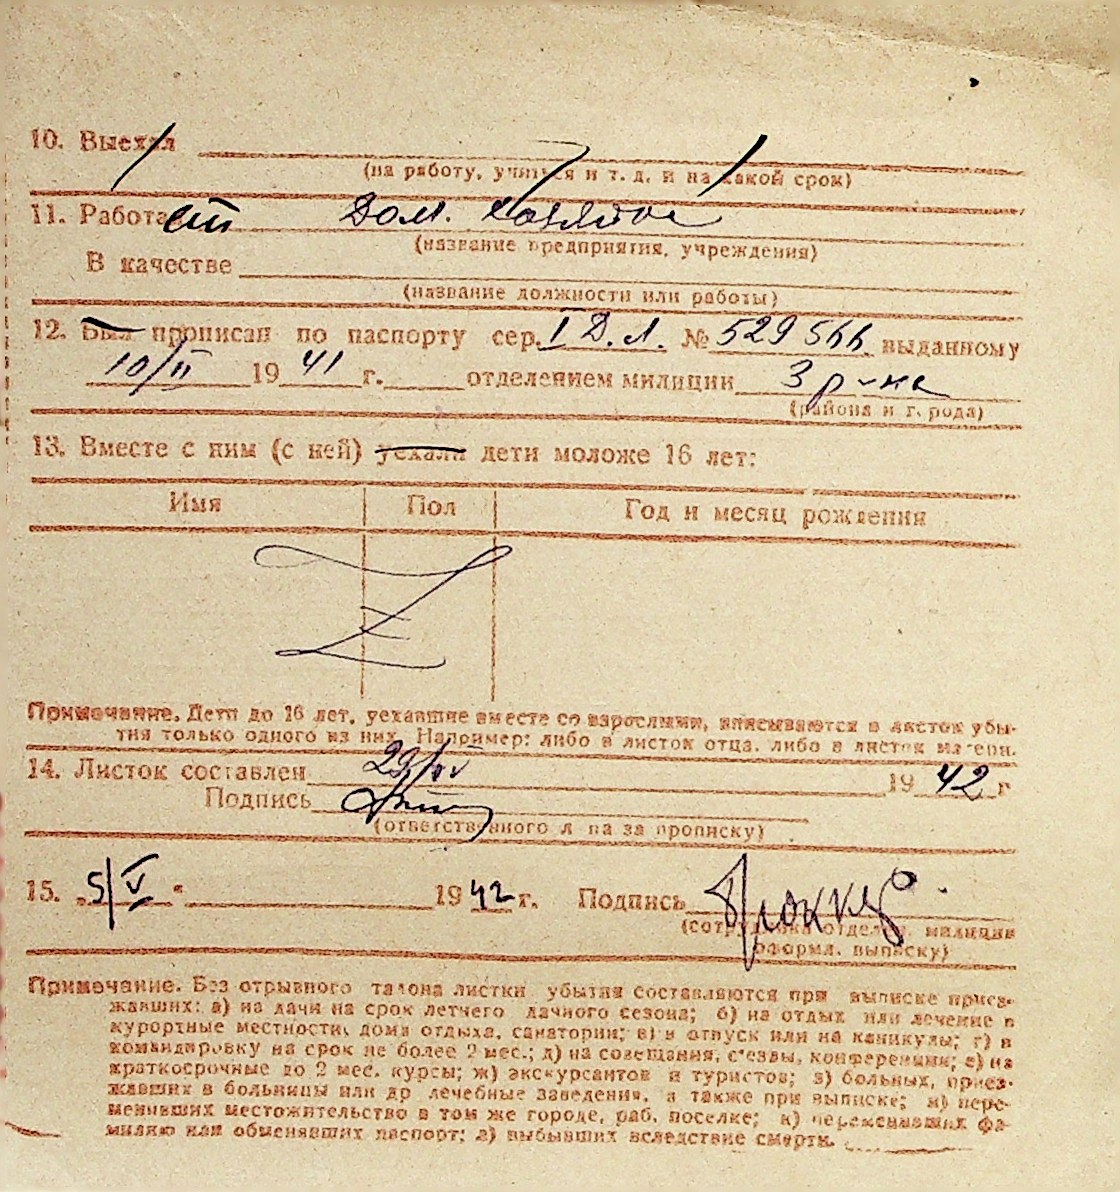 10. Выехал
(на работу, учиться и т. д. и на какой срок)
11. Работает Дом. хозяйка
(название предприятия, учреждения)
В качестве
(название должности или работы)
12. Был прописан по паспорту сер. I Д. Л. № 529566 выданному
10/II 1941 г. отделением милиции 3 р-на
(района и города)
13. Вместе с ним (с ней) уехали дети моложе 16 лет:
Имя Пол Год и месяц рождения
Z
Примечание. Дети до 16 лет, уехавшие вместе со взрослыми, вписываются в листок убы-
тия только одного из них. Например: либо в листок отца, либо в листок матери.
14. Листок составлен 29/IV 1942 г
Подпись
(ответственного лица за прописку)
15. „5/V" 1942 г. Подпись
(сотрудника отдел. милиции
оформл. выписку)
Примечание. Без отрывного талона листки убытия составляются при выписке приез-
жавших: а) на дачи на срок летнего дачного сезона; б) на отдых или лечение в
курортные местности, дома отдыха, санатории; в) в отпуск или на каникулы; г) в
командировку на срок не более 2 мес.; д) на совещания, с'езды, конференции; е) на
краткосрочные до 2 мес. курсы; ж) экскурсантов и туристов; з) больных, приез-
жавших в больницы или др лечебные заведения, а также при выписке; и) пере-
менивших местожительство в том же городе, раб. поселке; к) переменивших фа-
милию или обменявших паспорт; л) выбывших вследствие смерти.